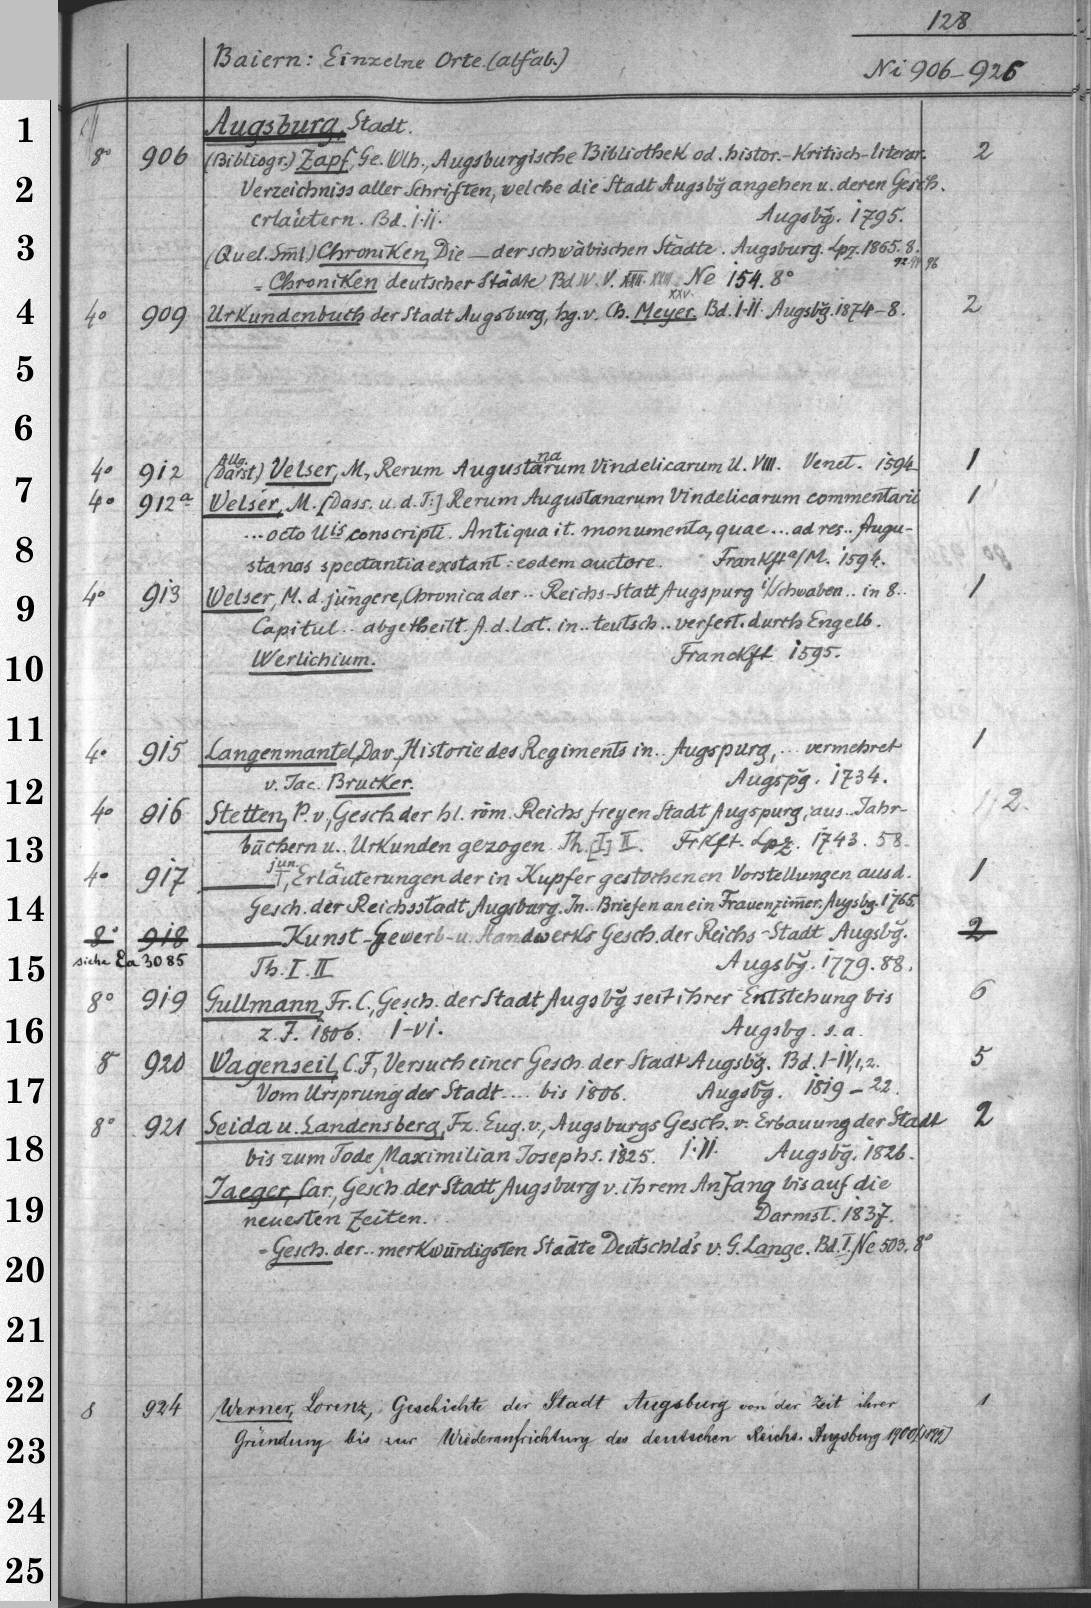 128
Baiern: Einzelne Orte (alfab.)
Ni 906-926
1
Augsburg, Stadt.
8° 906 (Bibliogr.) Zapf, Ge. Wlh., Augsburgische Bibliothek od. histor.-kritisch-literar. 2
2 Verzeichniss aller Schriften, welche die Stadt Augsbg̃ angehen u. deren Gesch.
erläutern. Bd. I.II. Augsbg̃. 1795.
3 (Quel. Sm̃l.) Chroniken, Die — der schwäbischen Städte. Augsburg. Lpz. 1865. 8.
92. 94. 96
= Chroniken deutscher Städte Bd IV. V. XXII. XXIII. Ne 154. 8°
XXV.
4 4° 909 Urkundenbuch der Stadt Augsburg, hg. v. Ch. Meyer. Bd. I.II. Augsbg̃. 1874-8. 2
5
6
4° 912 (Allg. Darst.) Velser, M., Rerum Augustanarum Vindelicarum ll. VIII. Venet. 1594 1
7 4° 912a Welser, M. [Dass. u. d. T:] Rerum Augustanarum Vindelicarum commentarii 1
... octo llis conscripti. Antiqua it. monumenta, quae ... ad res .. Augu-
8 stanas spectantia exstant: eodem auctore. Frankfta/M. 1594.
9 4° 913 Welser, M. d. jüngere, Chronica der .. Reichs-Statt Augspurg i/Schwaben .. in 8.. 1
Capitul .. abgetheilt. A. d. lat. in .. teutsch .. verfert. durch Engelb.
10 Werlichium. Franckft 1595.
11
4° 915 Langenmantel, Dav., Historie des Regiments in .. Augspurg, ... vermehret 1
12 v. Jac. Brucker. Augspg̃. 1734.
4° 916 Stetten, P. v., Gesch. der hl. röm. Reichs freyen Stadt Augspurg, aus .. Jahr- 2.
13 büchern u.. Urkunden gezogen. Th. [I] II. Frkft. Lpz. 1743. 58.
jun.
4° 917 —, Erläuterungen der in Kupfer gestochenen Vorstellungen aus d. 1
14 Gesch. der Reichsstadt Augsburg. In .. Briefen an ein Frauenzim̃er. Augsbg. 1765.
8° 918 — Kunst- Gewerb- u. Handwerks Gesch. der Reichs-Stadt Augsbg̃. 2
15 siehe Ea 3085 Th. I. II Augsbg̃. 1779. 88.
8° 919 Gullmann, Fr. C., Gesch. der Stadt Augsbg̃ seit ihrer Entstehung bis 6
16 z. J. 1806. I-VI. Augsbg. s. a.
8° 920 Wagenseil, C. F., Versuch einer Gesch. der Stadt Augsbg̃. Bd. I-IV,1,2. 5
17 Vom Ursprung der Stadt .... bis 1806. Augsbg̃. 1819-22.
8° 921 Seida u. Landensberg, Fz. Eug. v., Augsburgs Gesch. v. Erbauung der Stadt 2
18 bis zum Tode Maximilian Josephs. 1825. I.II. Augsbg̃. 1826.
19 Jaeger, Car., Gesch. der Stadt Augsburg v. ihrem Anfang bis auf die
neuesten Zeiten. Darmst. 1837.
= Gesch. der .. merkwürdigsten Städte Deutschld's v. G. Lange. Bd. I. Ne 503. 8°
20
21
22
8 924 Werner, Lorenz, Geschichte der Stadt Augsburg von der Zeit ihrer 1
23 Gründung bis zur Wiederaufrichtung des deutschen Reichs. Augsburg 1900 [1899]
24
25